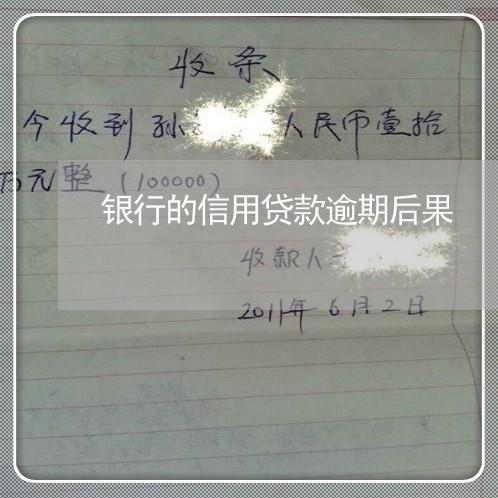 收条
今收到孙 人民币壹拾
万元整(100000)
银行的信用贷款逾期后果
收款人
2011年6月2日